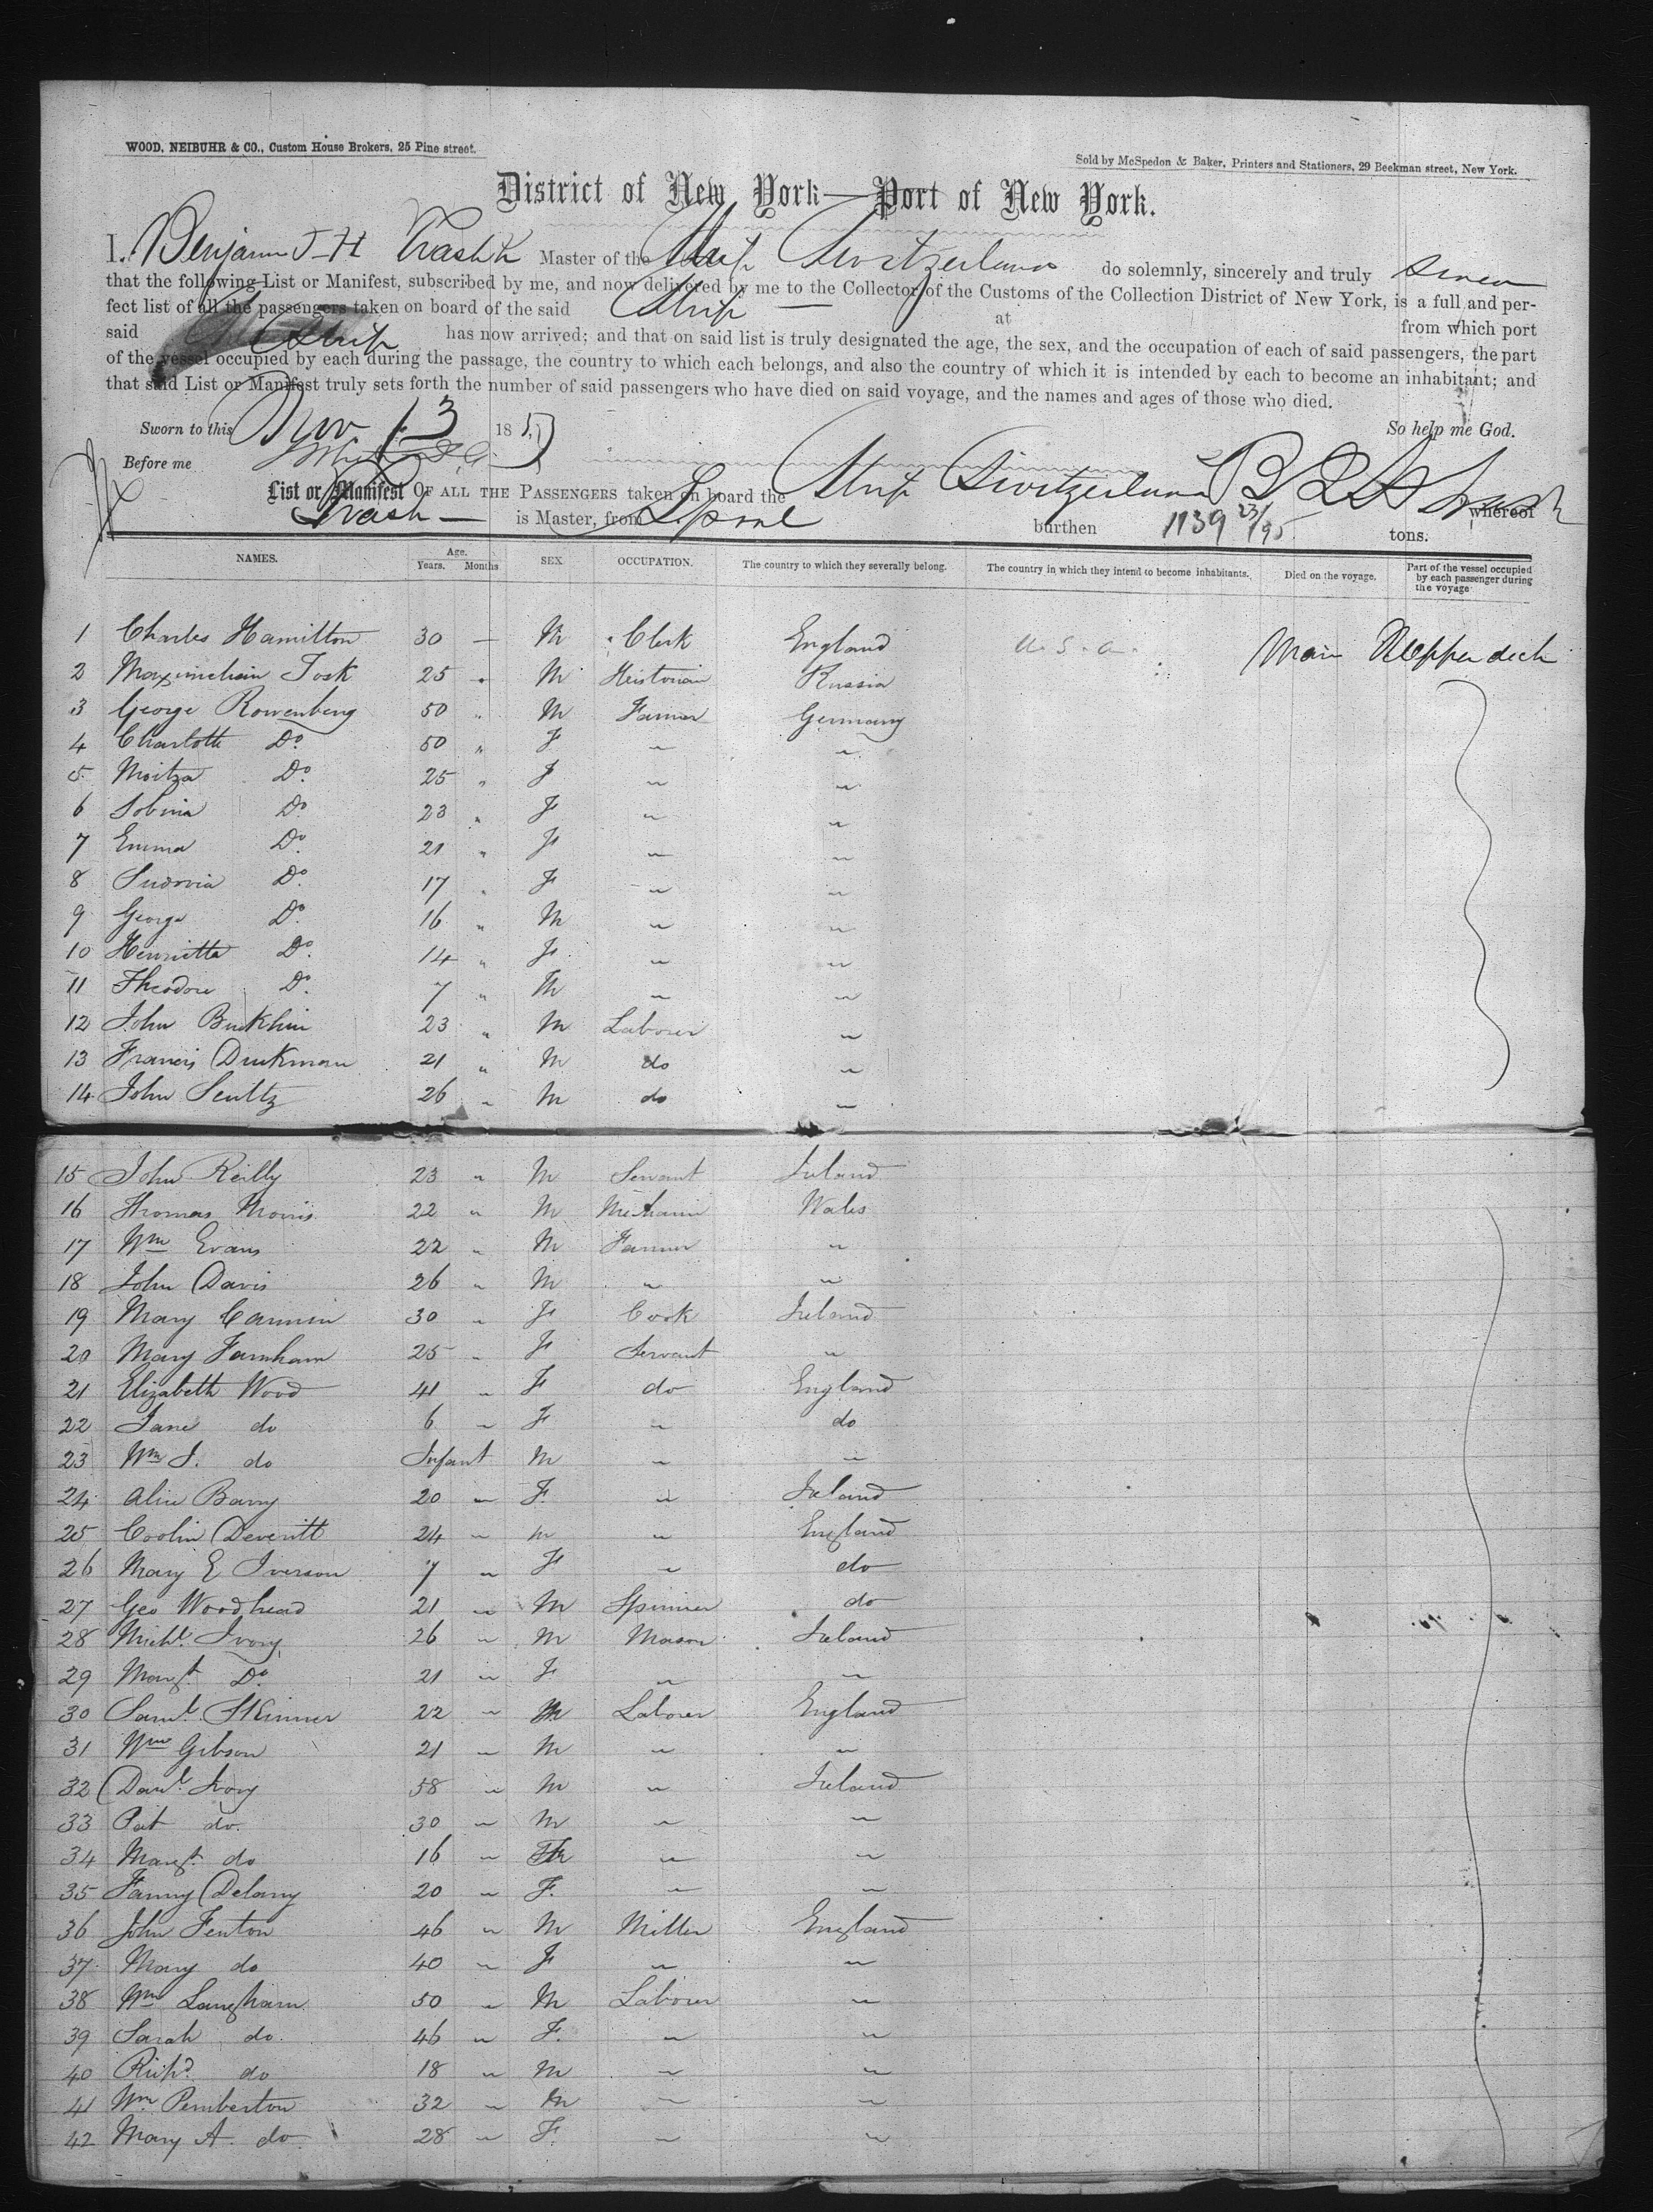 WOOD, NEIBUHR & CO., Custom House Brokers, 25 Pine street.
Sold by McSpedon & Baker, Printers and Stationers, 29 Beekman street, New York.
District of New York—Port of New York.
I, Benjamin Trask Master of the Ship Switzerland do solemnly, sincerely and truly swear
that the following List or Manifest, subscribed by me, and now delivered by me to the Collector of the Customs of the Collection District of New York, is a full and per-
fect list of all the passengers taken on board of the said Ship at from which port
said Ship has now arrived; and that on said list is truly designated the age, the sex, and the occupation of each of said passengers, the part
of the vessel occupied by each during the passage, the country to which each belongs, and also the country of which it is intended by each to become an inhabitant; and
that said List or Manifest truly sets forth the number of said passengers who have died on said voyage, and the names and ages of those who died.
Sworn to this Nov 13 185 So help me God.
Before me
List or Manifest OF ALL THE PASSENGERS taken on board the Ship Switzerland whereof
Trask is Master, from Lpool burthen 1139 23/95 tons.
NAMES. Age. Years. Months SEX. OCCUPATION. The country to which they severally belong. The country in which they intend to become inhabitants. Died on the voyage. Part of the vessel occupied by each passenger during the voyage
1 Charles Hamilton 30 — M Clerk England U.S.A. Main & Upper deck
2 Tosk 25 " M Historian Russia
3 George Rowenberg 50 " M Farmer Germany
4 Charlotte Do 50 " F " "
5 Do 25 " F " "
6 Sobina Do 23 " F " "
7 Emma Do 21 " F " "
8 Do 17 " F " "
9 George Do 16 " M " "
10 Henrietta Do 14 " F " "
11 Theodore Do 7 " M " "
12 John 23 " M Laborer "
13 Francis Druckman 21 " M do "
14 John Scultz 26 " M do "
15 John Reilly 23 " M Servant Ireland
16 Thomas Morris 22 " M Wales
17 Wm Evans 22 " M Farmer "
18 John Davis 26 " M " "
19 Mary 30 " F Cook Ireland
20 Mary Farnham 25 " F Servant "
21 Elizabeth Wood 41 " F do England
22 Jane do 6 " F " do
23 Wm J. do Infant M " "
24 Alice Barry 20 " F " Ireland
25 Coolin Deveritt 24 " M " England
26 Mary E Iverson 7 " F " do
27 Geo Woodhead 21 " M Spinner do
28 Michl Ivory 26 " M Mason Ireland
29 Margt Do 21 " F " "
30 Saml Skinner 22 " M Laborer England
31 Wm Gibson 21 " M " "
32 Danl Ivory 58 " M " Ireland
33 Pat do 30 " M " "
34 Margt do 16 " " "
35 Fanny Delany 20 " F " "
36 John Fenton 46 " M Miller England
37 Mary do 40 " F " "
38 Wm Langham 50 " M Laborer "
39 Sarah do 46 " F " "
40 Richd do 18 " M " "
41 Wm Pemberton 32 " M " "
42 Mary A. do 28 " F " "